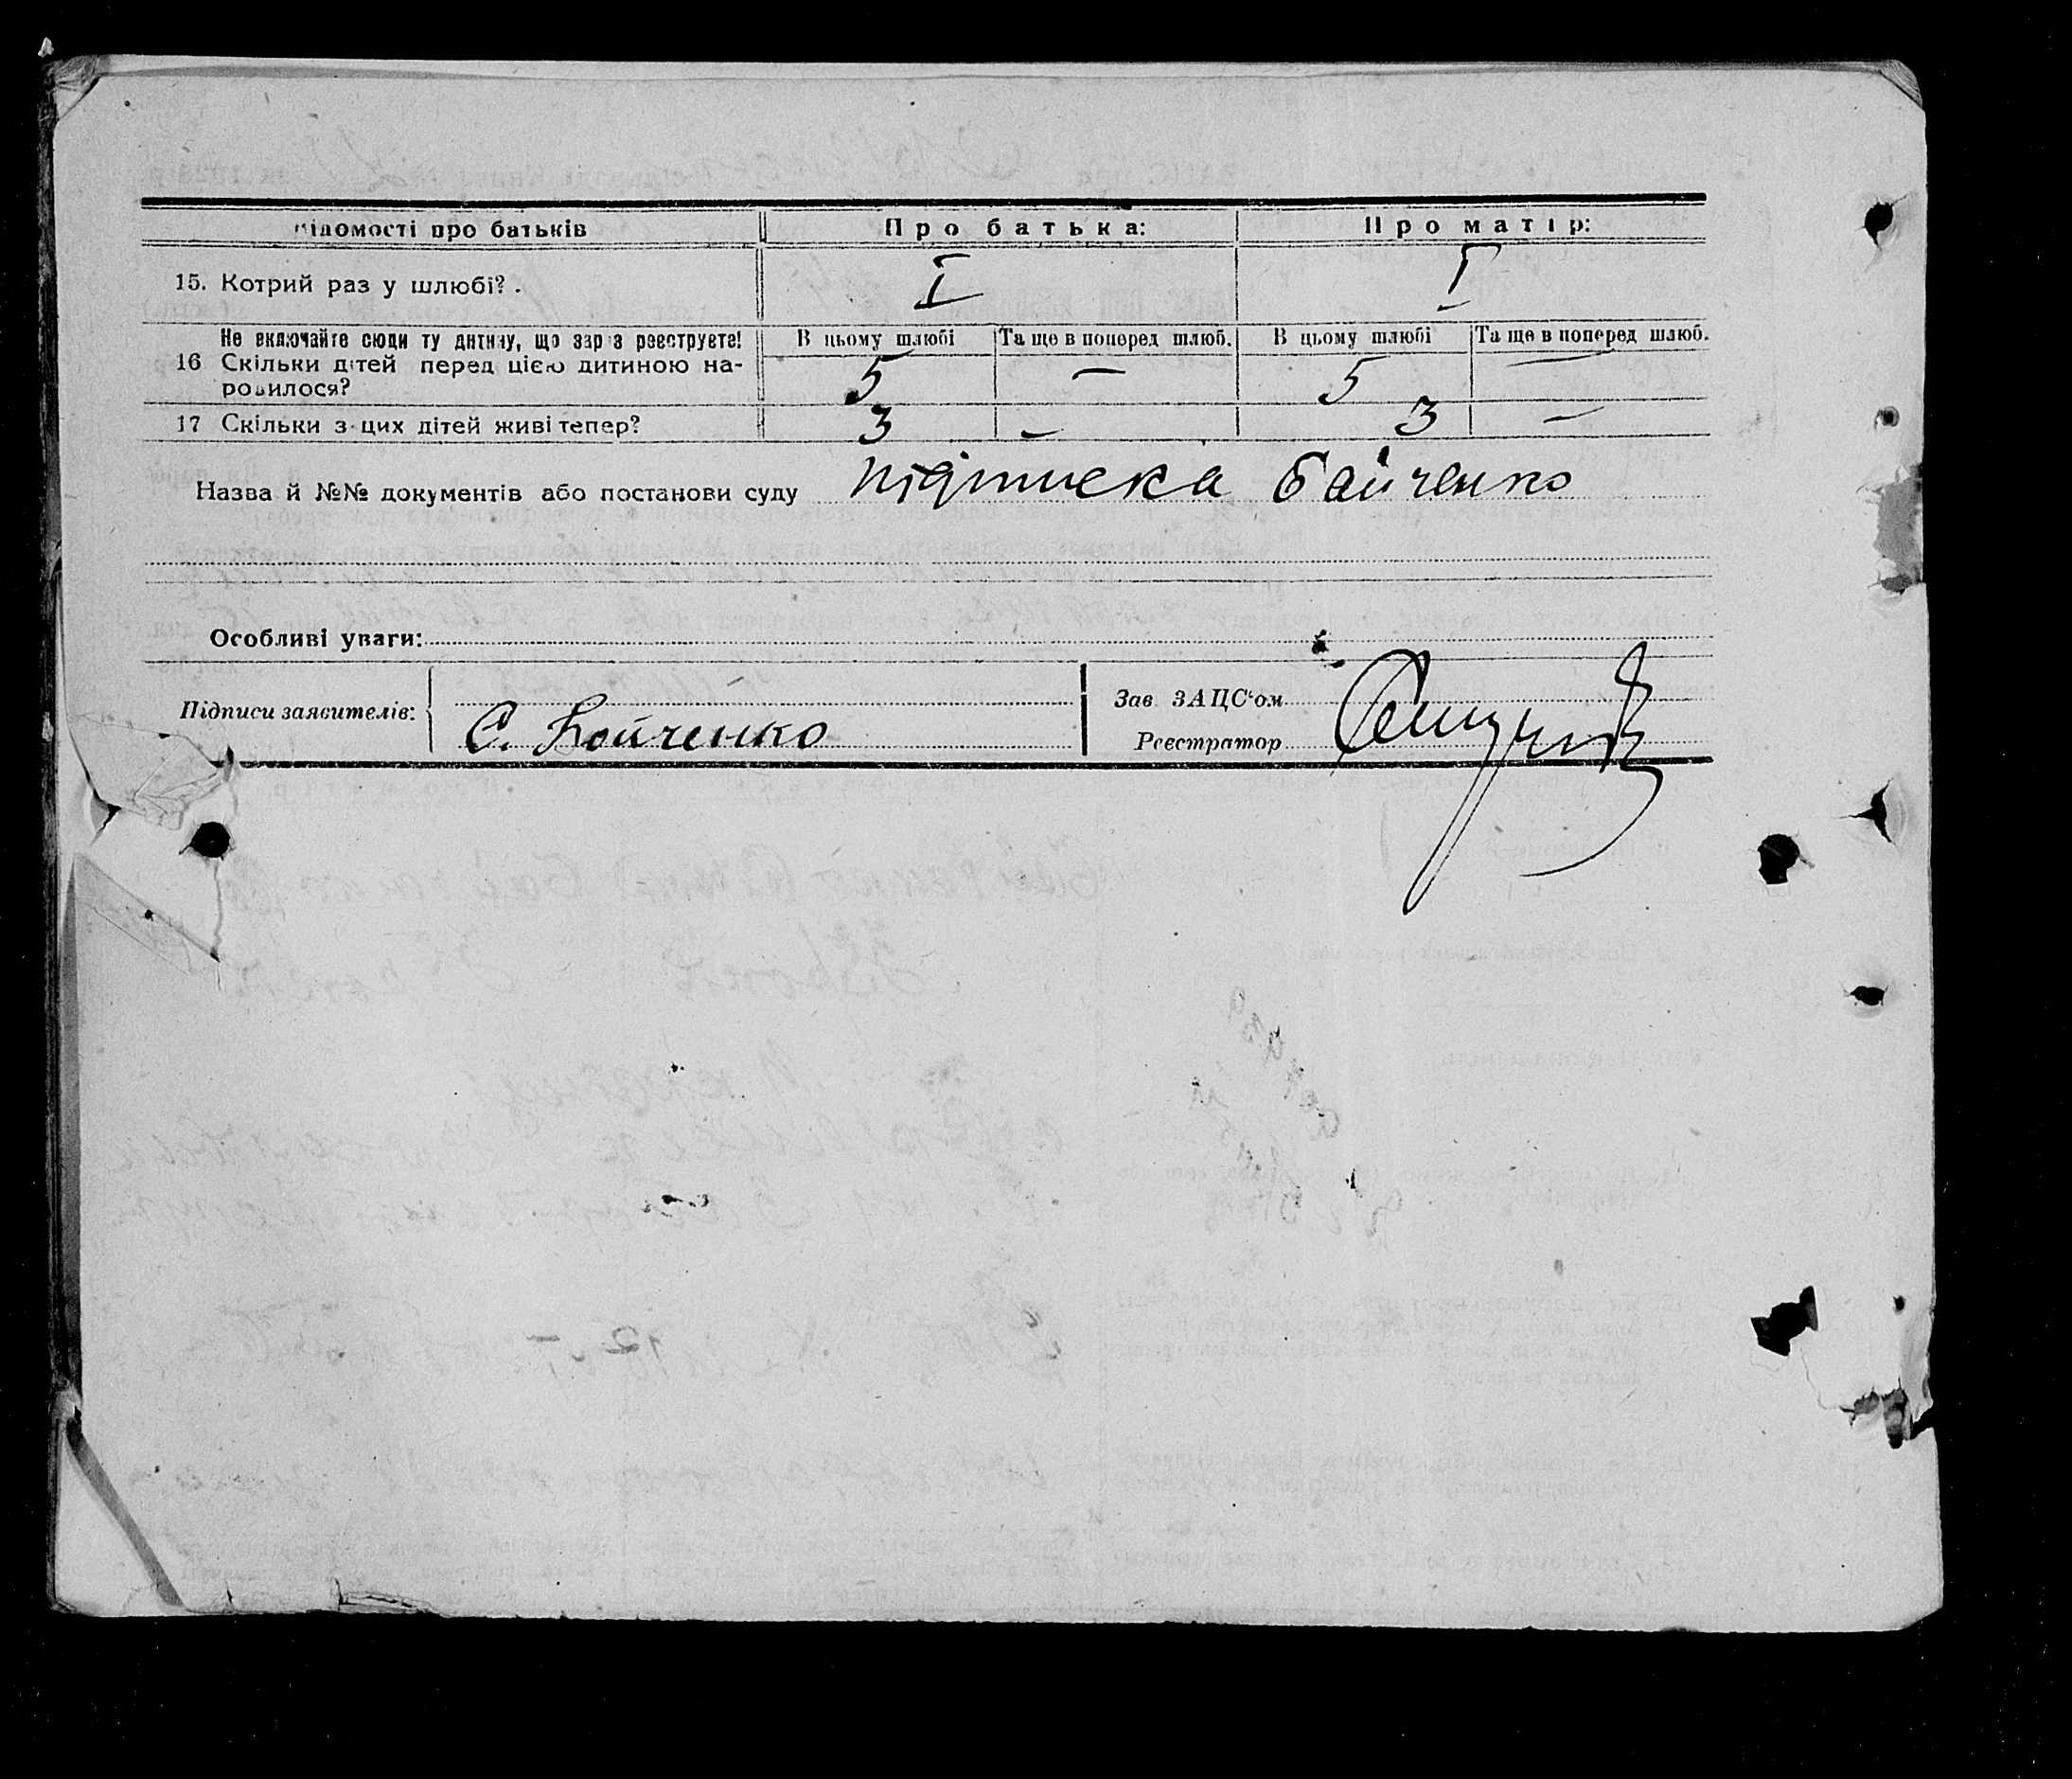 ідомості про батьків Про батька: Про матір:
15. Котрий раз у шлюбі? . I I
Не включайте сюди ту дитину, що зараз реєструєте! В цьому шлюбі Та ще в поперед шлюб. В цьому шлюбі Та ще в поперед шлюб.
16 Скільки дітей перед цією дитиною на- 5 — 5 —
родилося?
17 Скільки з цих дітей живі тепер? 3 — 3 —
Назва й №№ документів або постанови суду підписка Байченко
Особливі уваги:
Підписи заявителів: С. Бойченко
Зав ЗАЦС'ом
Реєстратор